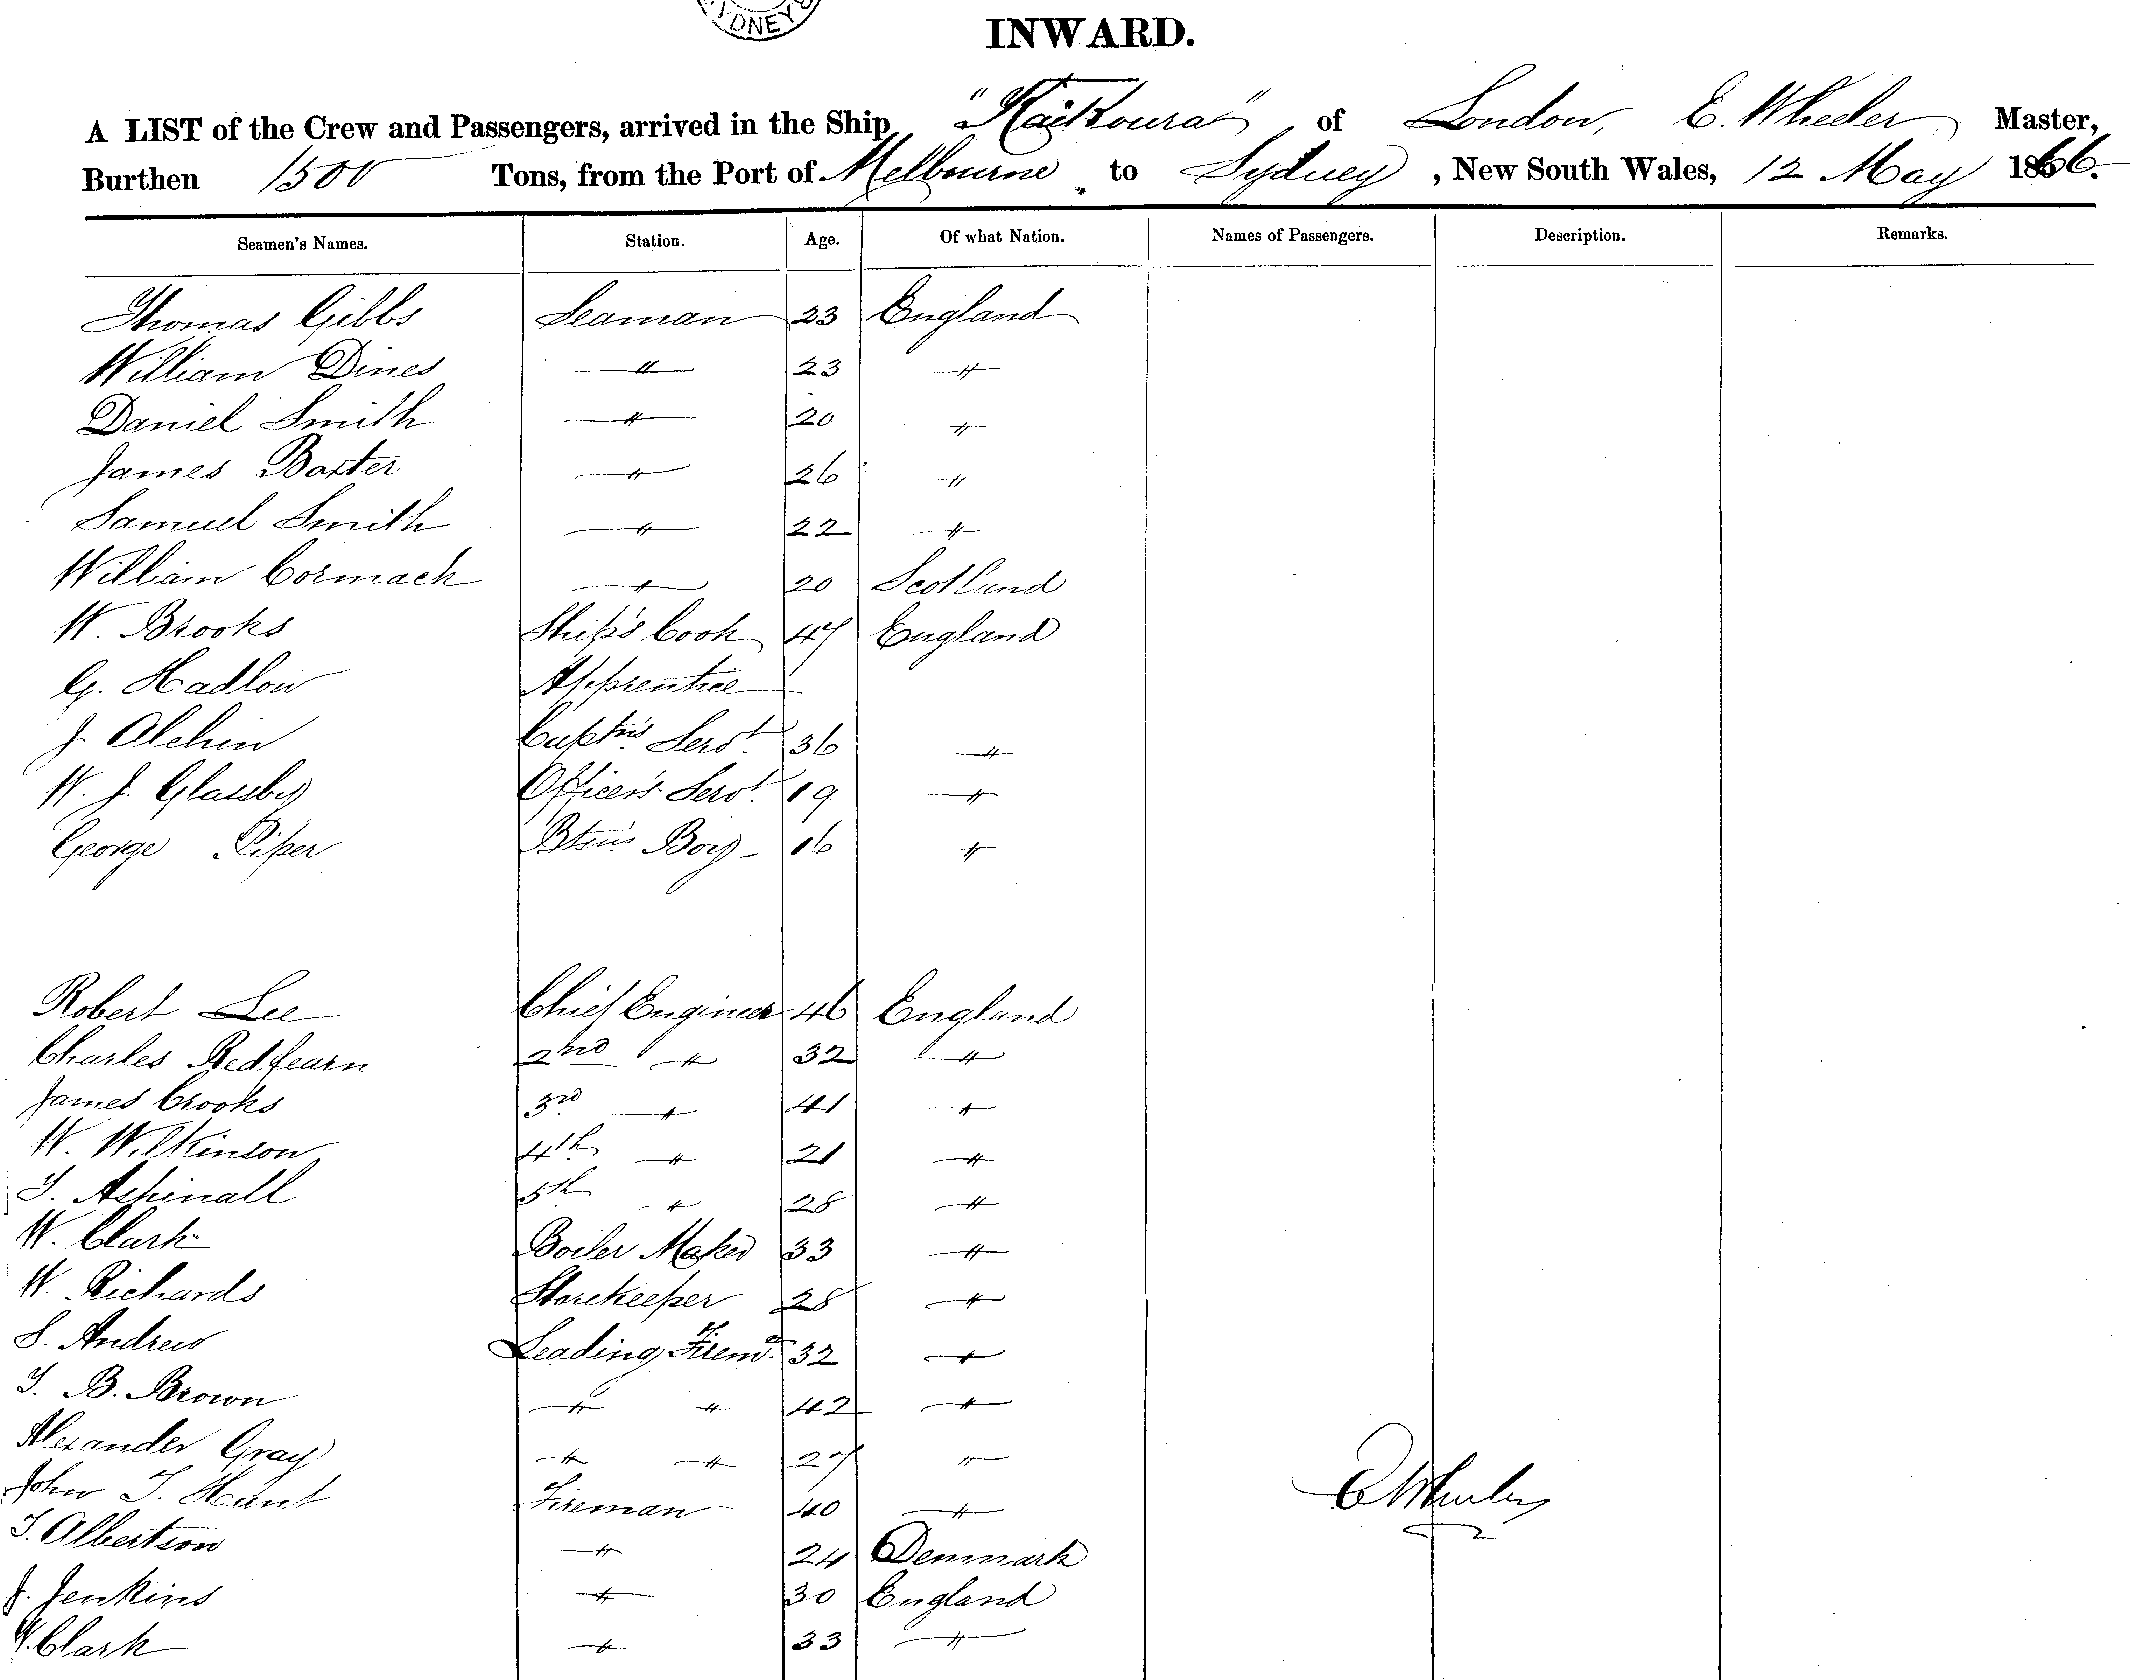 SYDNEY
INWARD.
A LIST of the Crew and Passengers, arrived in the Ship "Kaikoura" of London, E. Wheeler Master,
Burthen 1500 Tons, from the Port of Melbourne to Sydney, New South Wales, 12 May 1866.
Seamen's Names. Station. Age. Of what Nation. Names of Passengers. Description. Remarks.
Thomas Gibbs Seaman 23 England
William Dines " 23 "
Daniel Smith " 20 "
James Baxter " 26 "
Samuel Smith " 22 "
William Cormack " 20 Scotland
W. Brooks Ship's Cook 47 England
G. Hadlow Apprentice
J. Alchin Captn's Servt. 36 "
W. J. Glassby Officer's Servt. 19 "
George Piper Btsn's Boy 16 "
Robert Lee Chief Engineer 46 England
Charles Redfearn 2nd " 32 "
James Crooks 3rd " 41 "
W. Wilkinson 4th " 21 "
T. Aspinall 5th " 28 "
W. Clark Boiler Maker 33 "
W. Richards Storekeeper 28 "
S. Andrew Leading Firem 32 "
T. B. Brown " " 42 "
Alexander Gray " " 27 "
John T. Hunt Fireman 40 "
T. Albertson " 24 Denmark
J. Jenkins " 30 England
Clark " 33 "
E Wheeler